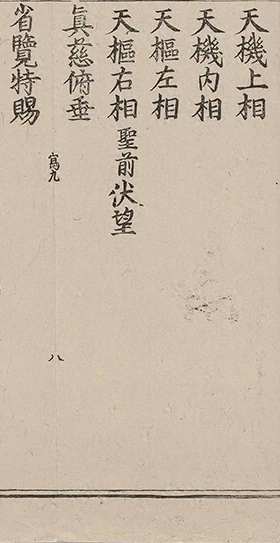 天機上相
天機内相
天樞左相
天樞右相聖前伏望
眞慈俯垂
寫九
八
省覽特賜